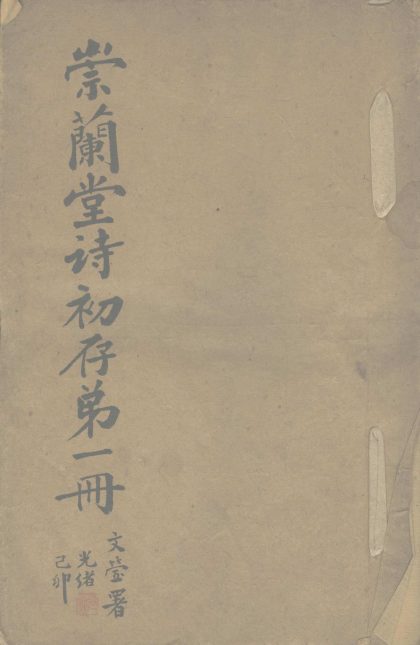 崇蘭堂诗初存弟一冊
文瑩署
光绪
己卯